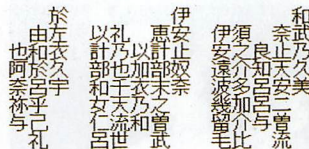 和武乃久美
奈止天安二曽流
良知呂呂与
須之介多加介比
伊安遠波幾留毛
伊安止奴奈
恵計部末之曽武
以加衣乃和
礼乃也千天流世
以計部和女仁呂
於左衣久宇
由和於呂乎己礼
也阿奈祢与